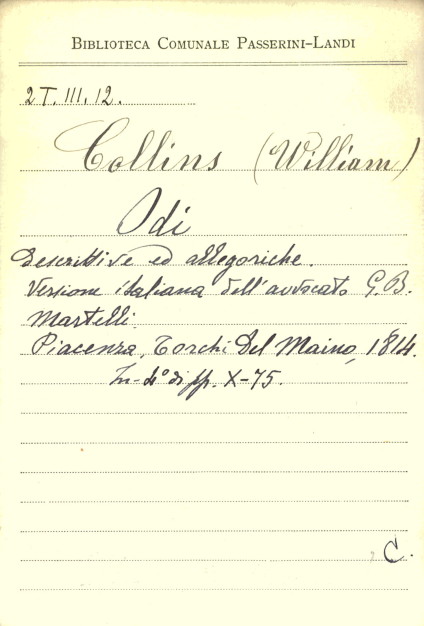 BIBLIOTECA COMUNALE PASSERINI-LANDI
2T. III. 12.
Collins (William)
Odi
descrittive ed allegoriche.
Versione italiana dell'avvocato G. B.
Martelli.
Piacenza, Torchi Del Maino, 1814.
In-4° di pp. X-75.
C.